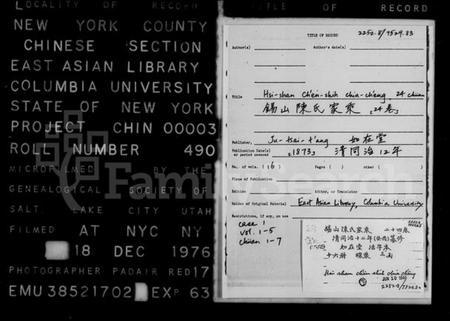 LOCALITY OF RECORD
NEW YORK COUNTY
CHINESE SECTION
EAST ASIAN LIBRARY
COLUMBIA UNIVERSITY
STATE OF NEW YORK
PROJECT CHIN 00003
ROLL NUMBER 490
MICROFILMED BY THE
GENEALOGICAL SOCIETY OF
SALT LAKE CITY UTAH
FILMED AT NYC NY
18 DEC 1976
PHOTOGRAPHER PADAIR RED17
EMU38521702 EXP 63
TITLE OF RECORD
TITLE OF RECORD
2252.8/7529.83
Author(s) Author's date(s)
Title Hsi-shan Ch'en-shih chia-ch'eng 24 chüan
錫山陳氏家乘 24卷
Publisher, Ju-tsai-t'ang 如在堂
Publication Date(s) or period covered 1873, 清同治12年
No. of vols. (16) Pages ( ) other
Place of Publication
Edition Author, or Translator
Location of Original Material East Asian Library, Columbia University
Annotations, if any, on use
case 1
vol. 1-5
chüan 1-7
錫山陳氏家乘 二十四卷
清同治十二年(癸酉)
如在堂 活字本
十六册 線裝 三函
Hsi shan chen shih chia cheng
FamilySearch